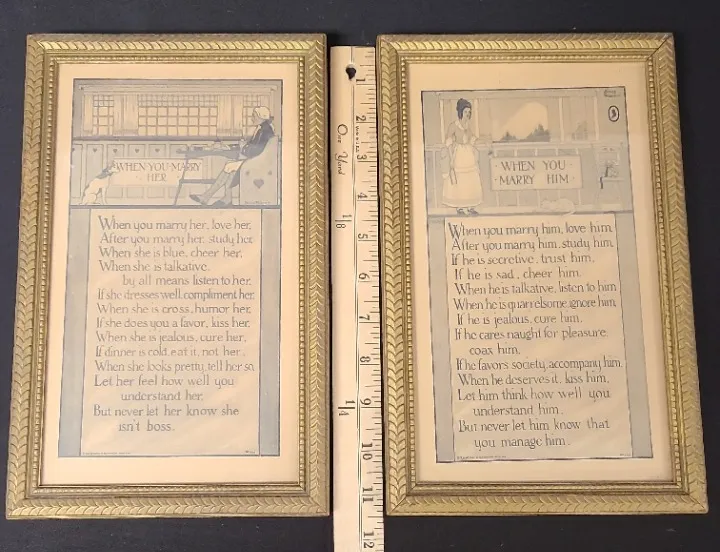 WHEN YOU MARRY
HER
When you marry her, love her,
After you marry her, study her.
When she is blue, cheer her,
When she is talkative,
by all means listen to her.
If she dresses well, compliment her,
When she is cross, humor her,
If she does you a favor, kiss her,
When she is jealous, cure her,
If dinner is cold, eat it, not her,
When she looks pretty, tell her so,
Let her feel how well you
understand her,
But never let her know she
isn't boss.
One Yard
1/8
1/4
1
2
3
4
5
6
7
8
9
10
11
12
WHEN YOU
MARRY HIM
When you marry him, love him.
After you marry him, study him.
If he is secretive, trust him,
If he is sad, cheer him,
When he is talkative, listen to him
When he is quarrelsome, ignore him,
If he is jealous, cure him,
If he cares naught for pleasure,
coax him,
If he favors society, accompany him.
When he deserves it, kiss him,
Let him think how well you
understand him,
But never let him know that
you manage him.